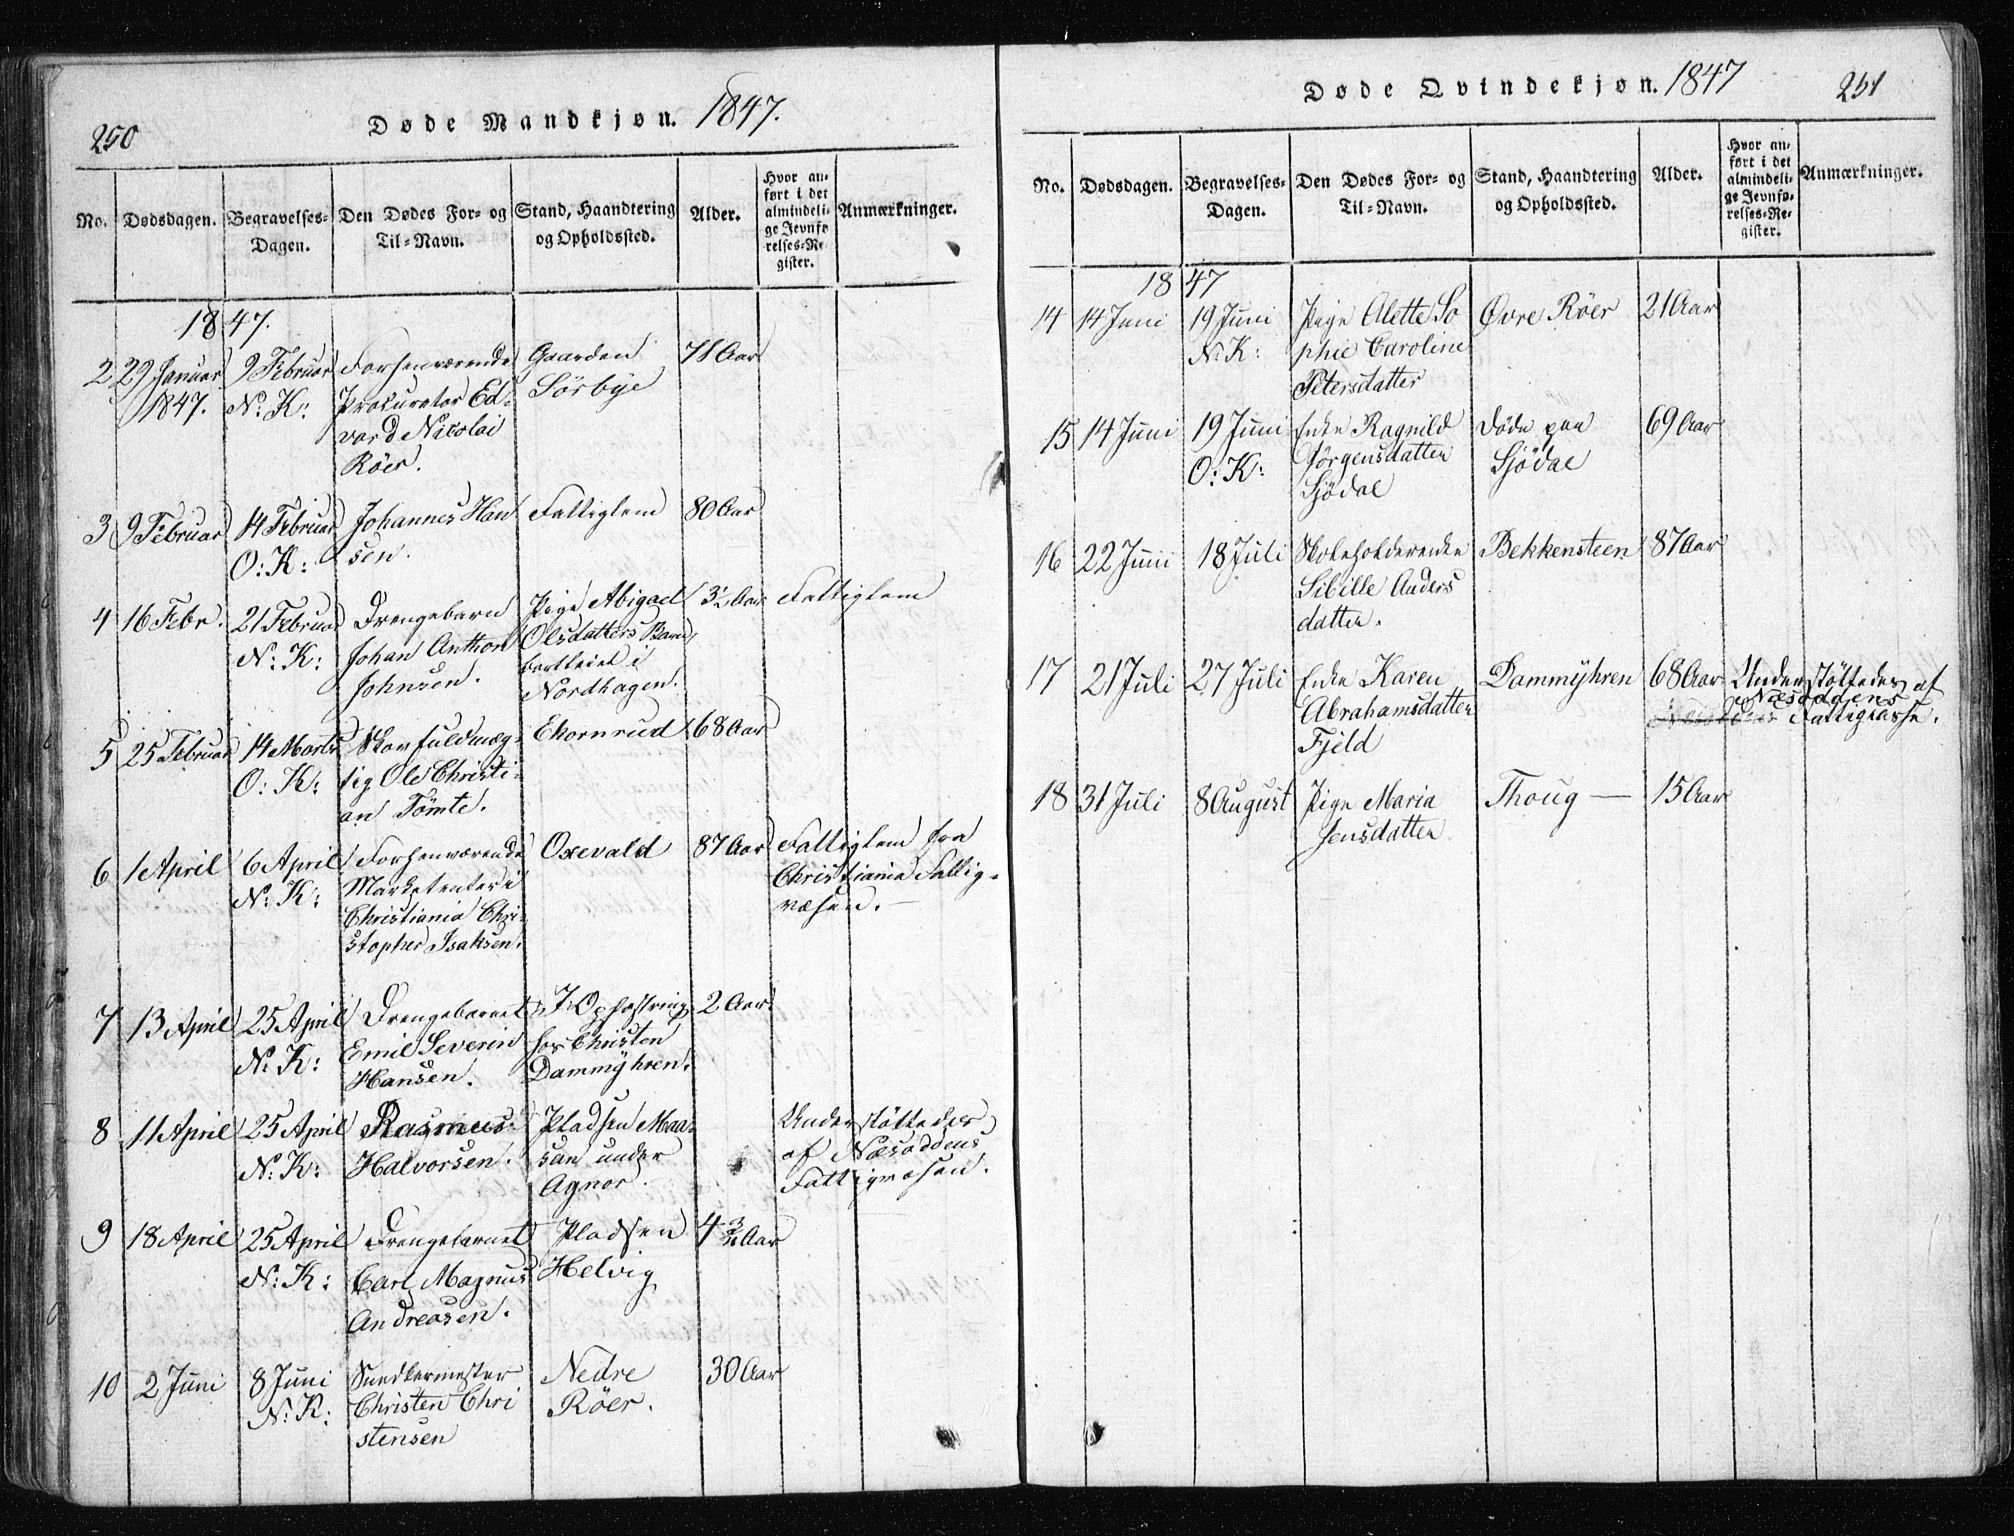 250
Døde Mandkjøn. 1847.
No. Dødsdagen. Begravelses-Dagen. Den Dødes For- og Til-Navn. Stand, Haandtering og Opholdssted. Alder. Hvor anført i det almindelige Jevnførelses-Register. Anmærkninger.
1847.
2 29 Januar 9 Februar Forhenværende Gaarden 71 Aar
1847. N: K: Procurator Ed- Sörbye
vard Nicolai
Röer.
3 9 Februar 14 Februar Johannes Han Fattiglem 80 Aar
O: K: sen.
4 16 Febr. 21 Februar Drengebarn Pige Abigael 3½ Aar Fattiglem
N: K: Johan Anthon Olsdatters Barn,
Johnsen. i
Nordhagen.
5 25 Februar 14 Marts Skovfuldmæg- Ekornrud 68 Aar
O: K: tig Ole Christi-
an Tömte.
6 1 April 6 April Forhenværende Oxevald 87 Aar Fattiglem fra
N: K: Marketenter i Christiania Fattig-
Christiania Chri- væsen.
stopher Isaksen.
7 13 April 25 April Drengebarnet I Opfostring 2 Aar
N: K: Emil Severin hos Christen
Hansen. Dammyhren.
8 11 April 25 April Rasmus Pladsen Maa- Understöttedes
N: K: Halvorsen. san under af Næsoddens
Agnor. Fattigvæsen.
9 18 April 25 April Drengebarnet Pladsen 4¾ Aar
N: K: Carl Magnus Helvig
Andreasen.
10 2 Juni 8 Juni Snedkermester Nedre 30 Aar
N: K: Christen Chri Röer.
stensen
Døde Qvindekjøn. 1847 251
No. Dødsdagen. Begravelses-Dagen. Den Dødes For- og Til-Navn. Stand, Haandtering og Opholdssted. Alder. Hvor anført i det almindelige Jevnførelses-Register. Anmærkninger.
1847
14 14 Juni 19 Juni Pige Alette So Øvre Röer 21 Aar
N: K: phie Caroline
Petersdatter
15 14 Juni 19 Juni Enke Ragnild Döde paa 69 Aar
O: K: Jörgensdatter Sjödal
Sjödal
16 22 Juni 18 Juli Skoleholderenke Bekkensteen 87 Aar
Sibille Anders
datter.
17 21 Juli 27 Juli Enke Karen Dammyhren 68 Aar Understöttedes af
Abrahamsdatter Næsoddens
Fjeld Fattigkasse.
18 31 Juli 8 August Pige Maria Thoug — 15 Aar
Jensdatter